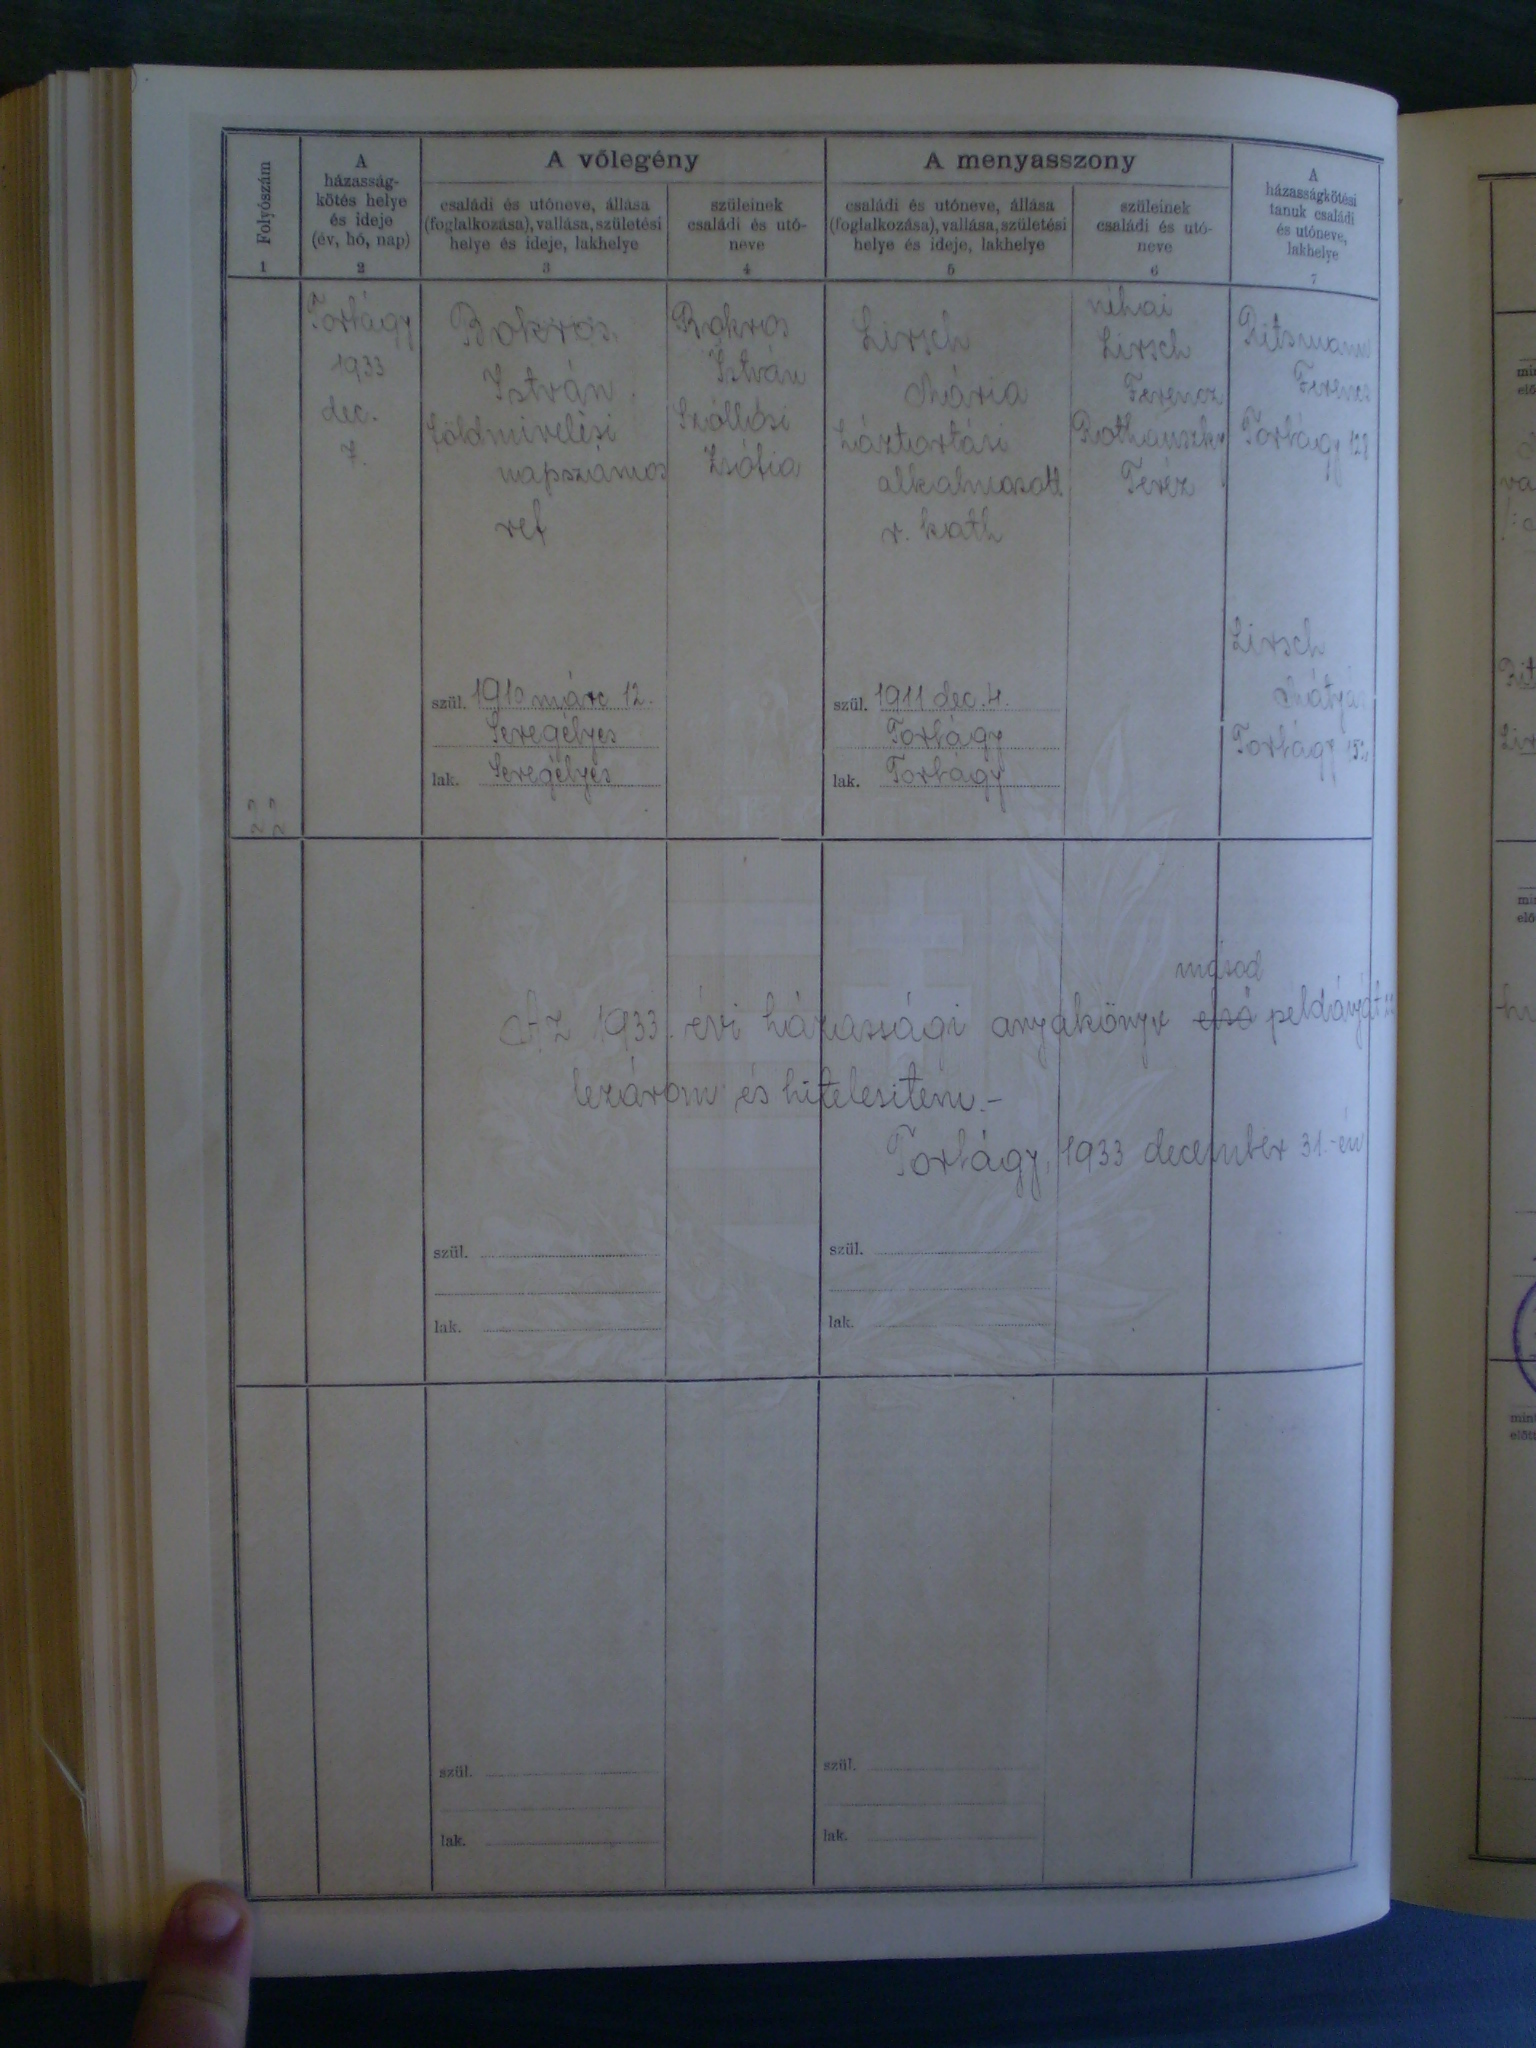 Folyószám
1
A
házasság-
kötés helye
és ideje
(év, hó, nap)
2
A vőlegény
családi és utóneve, állása
(foglalkozása), vallása, születési
helye és ideje, lakhelye
3
szüleinek
családi és utó-
neve
4
A menyasszony
családi és utóneve, állása
(foglalkozása), vallása, születési
helye és ideje, lakhelye
5
szüleinek
családi és utó-
neve
6
A
házasságkötési
tanuk családi
és utóneve,
lakhelye
7
Torbágy
1933
dec.
7.
Bokros
István
földmivelési
napszámos
ref
szül. 1910 márc 12.
Seregélyes
lak. Seregélyes
Bokros
István
Szöllősi
Zsófia
Lirsch
Mária
háztartási
alkalmazott
r. kath
szül. 1911 dec. 4.
Torbágy
lak. Torbágy
néhai
Lirsch
Ferencz
Teréz
Ritsmann
Ferencz
Torbágy 128
Lirsch
Mátyás
Torbágy
másod
Az 1933. évi házassági anyakönyv első példányát
lezárom és hitelesitem.-
Torbágy, 1933 december 31.-én
szül.
lak.
szül.
lak.
szül.
lak.
szül.
lak.